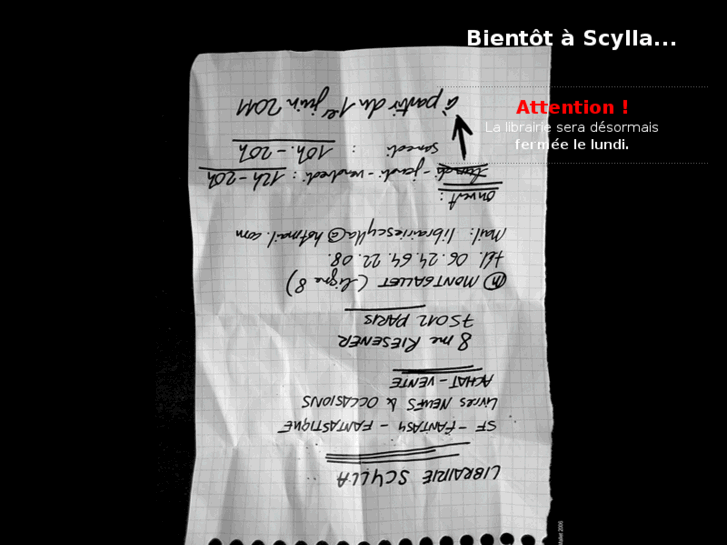 Bientôt à Scylla...
Attention !
La librairie sera désormais
fermée le lundi.
LIBRAIRIE SCYLLA
SF - FANTASY - FANTASTIQUE
LIVRES NEUFS & OCCASIONS
ACHAT - VENTE
8 rue RIESENER
75012 PARIS
(M) MONTGALLET (Ligne 8)
Tél. 06.24.64.22.08.
Mail: librairiescylla@hotmail.com
OUVERT :
lundi - jeudi - vendredi : 12h - 20h
samedi : 10h. - 20h
à partir du 1er juin 2011